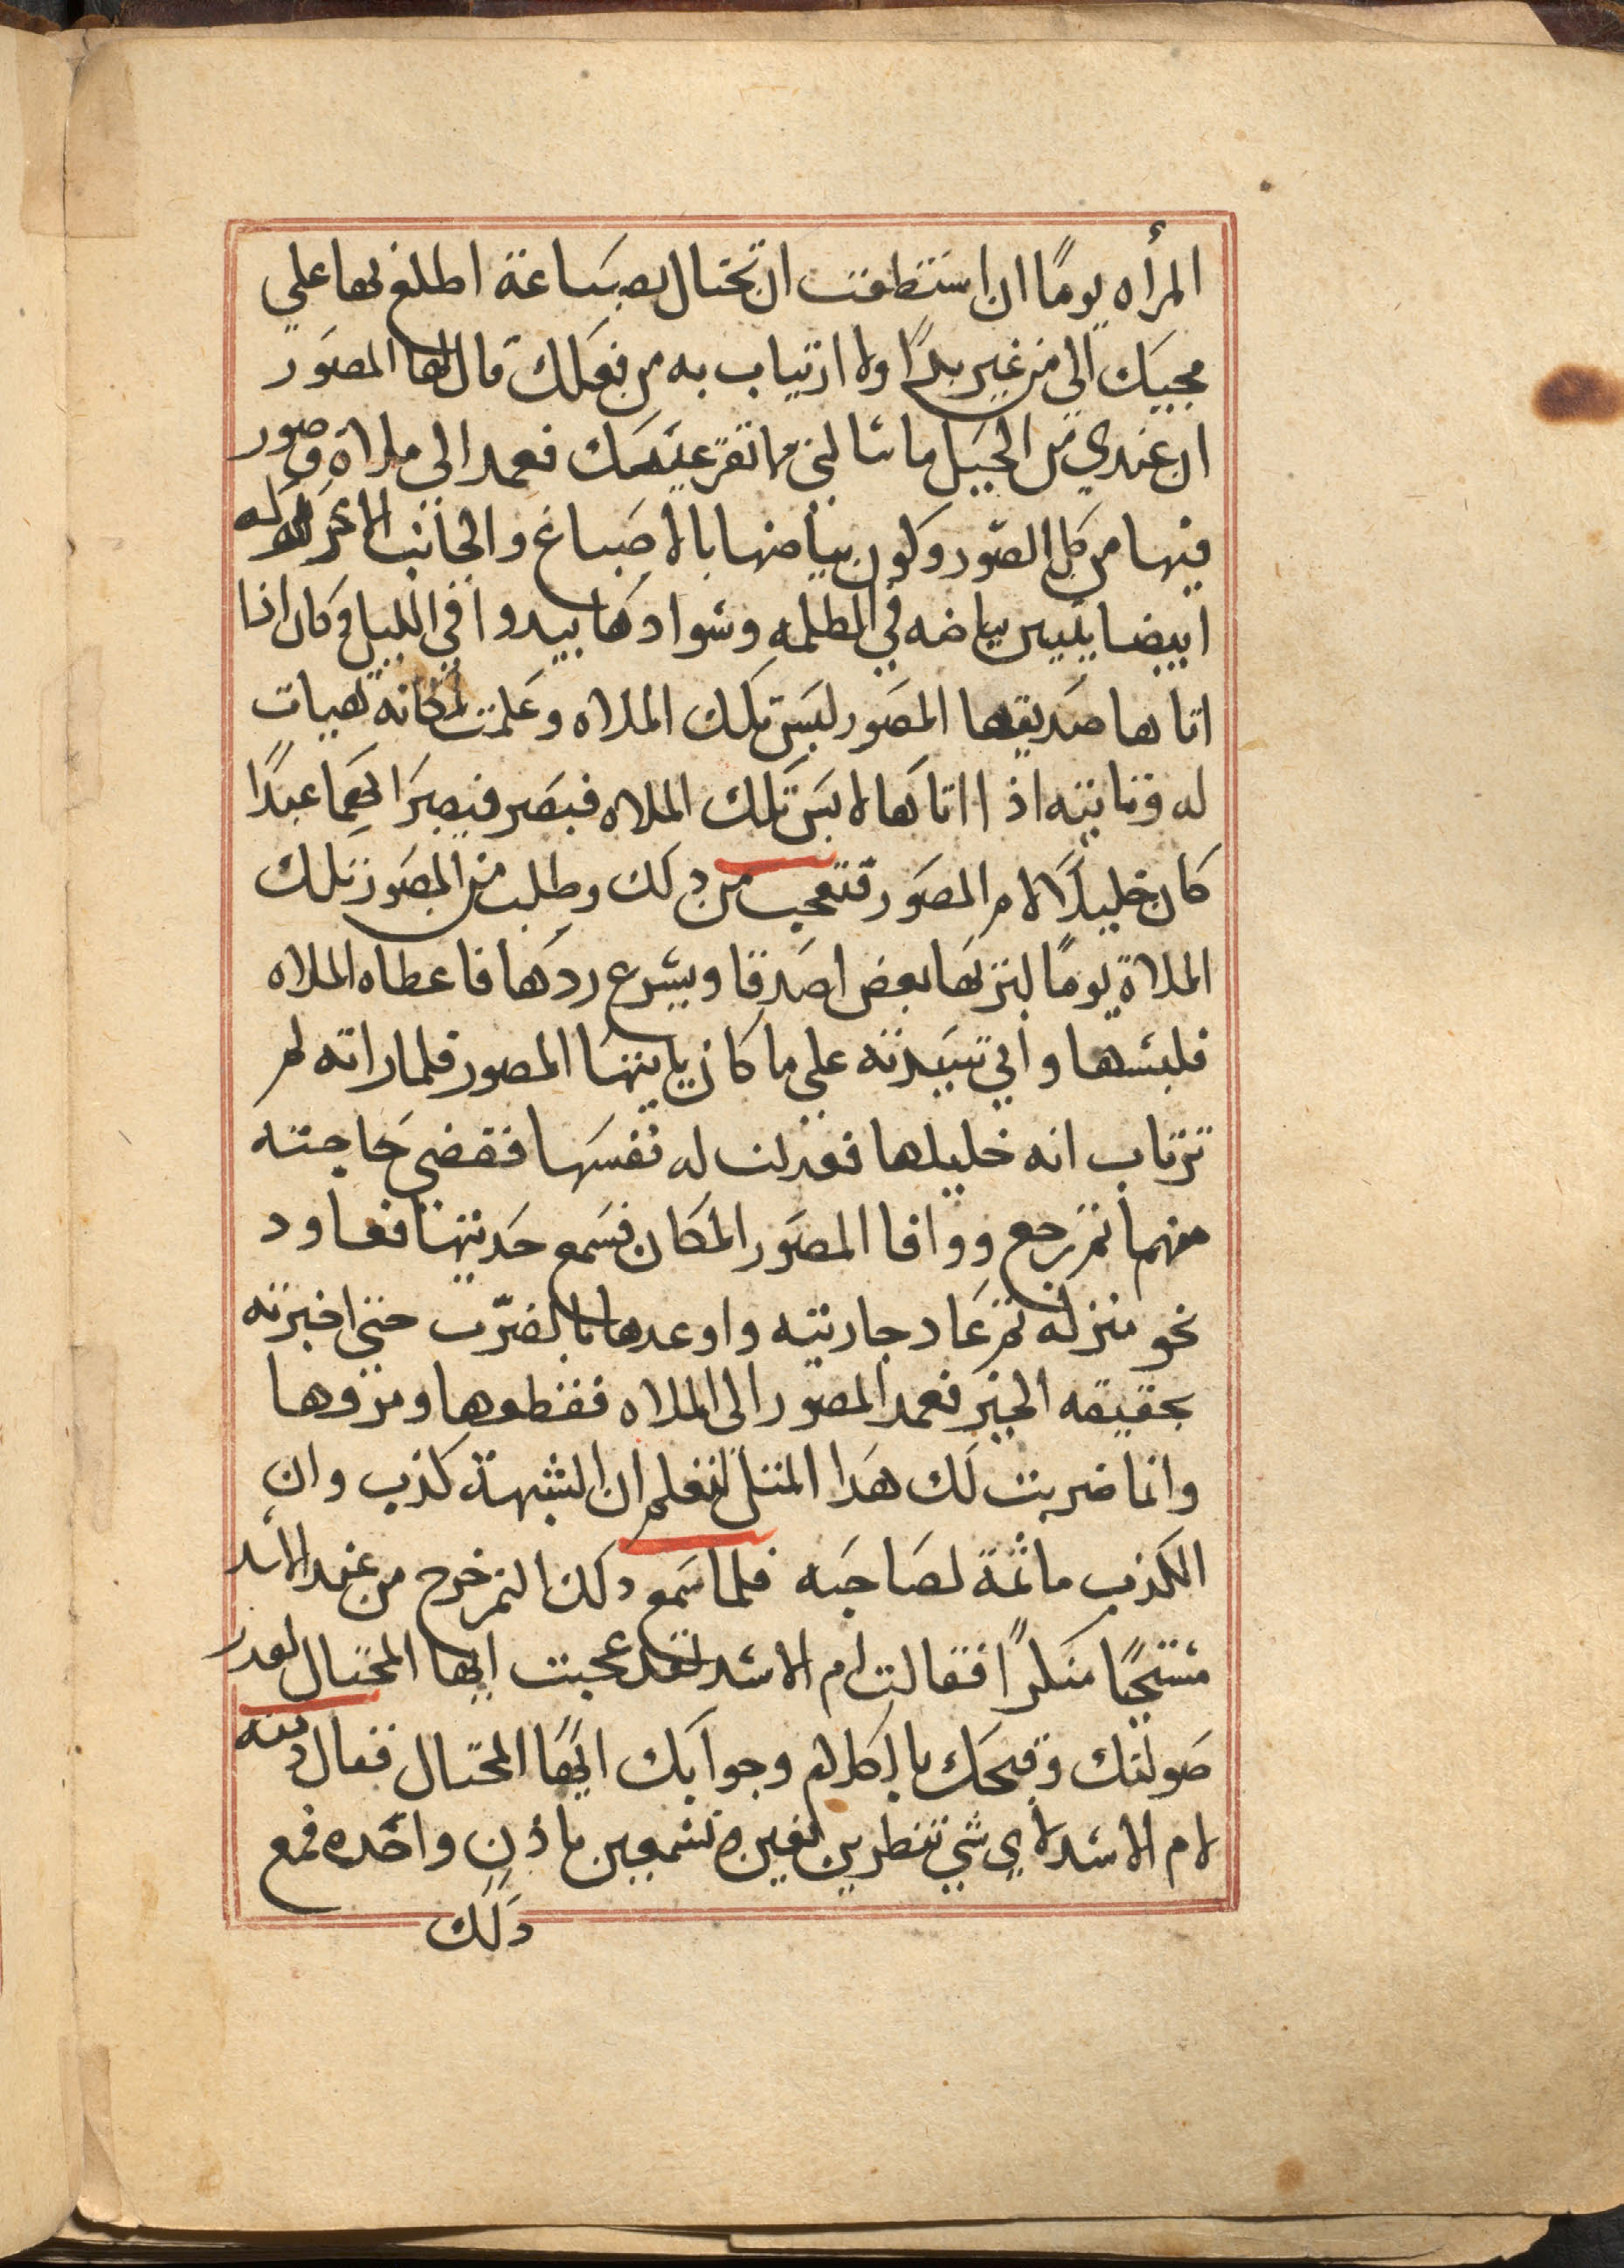 المرأه يومًا ان استطعت ان تحتال بصناعة اطلع بها علي
مجيك الي من غير بدًا ولا ارتياب به من فعلك قال لها المصور
ان عندي من الحيل ما سالتي ما تقر عينك فعمد الي ملاة وصور
فيها من كل الصور وكون بياضها بالاصباغ والجانب الاخر
ابيضا يبين بياضه في الظلمه وسوادها يبدوا في الليل وكان اذا
اتاها صديقها المصور لبس تلك الملاه وعلمت مكانه تهيات
له وتاتيه اذا اتاها لابس تلك الملاه فبصر فبصر ابهما عبدًا
كان خليلًا لام المصور فتعجب من ذلك وطلب من المصور تلك
الملاة يومًا ليزيها بعض اصدقا ويسرع ردها فاعطاه الملاه
فلبسها واتي سيدته علي ما كان ياتيها المصور فلما راته لم
ترتاب انه خليلها فبدلت له نفسها فقضي حاجته
منهما ثم رجع ووافا المصور المكان فسمع حديثها فعاود
نحو منزله ثم عاد جاريته واوعدها بالضرب حتي اخبرته
بحقيقه الخبر فعمد المصور الي الملاه فقطعها ومزقها
وانما ضربت لك هدا المثل لتعلم ان الشبهة كذب وان
الكذب ماثمة لصاحبه فلما سمع دلك النمر خرج من عند الاسد
مستحيًا منكرًا فقالت ام الاسد لقد عجبت ايها المحتال لقدر
صولتك وقبحك بالكلام وجوابك ايها المحتال فقال دمنه
لام الاسد لاي شي تنظرين بعين وتسمعين باذن واحده فمع
دلك